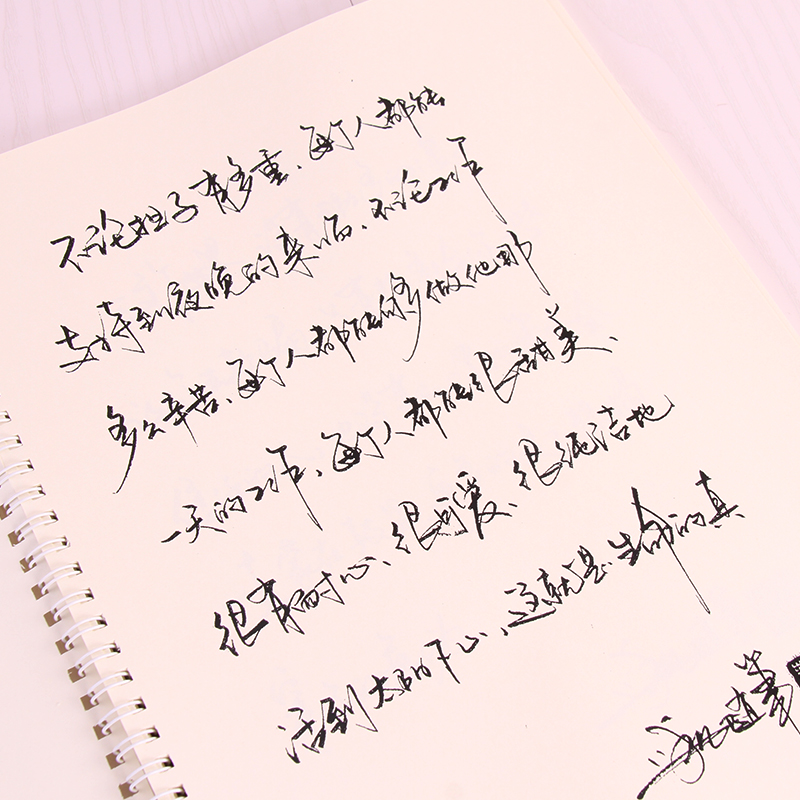 不论担子有多重、每个人都能
支持到夜晚的来临、不论工作
多么辛苦、每个人都能够做他那
一天的工作、每个人都能很甜美、
很有耐心、很可爱、很纯洁地
活到太阳下山、这就是生命的真